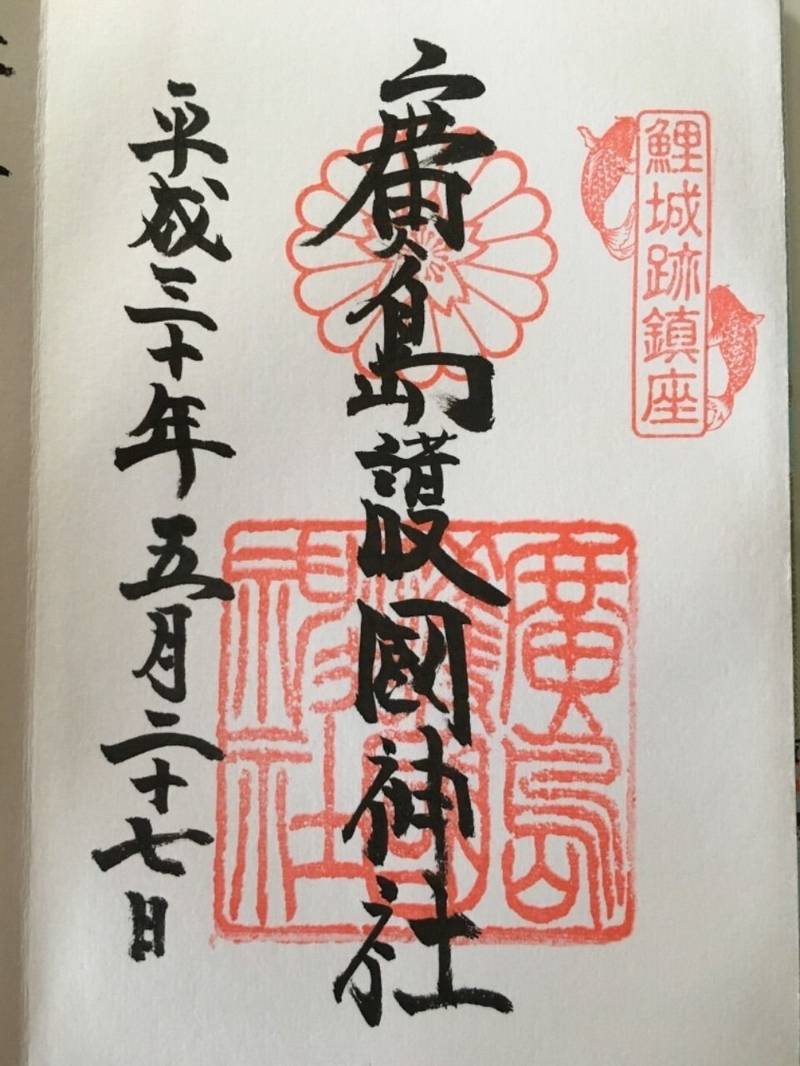 鯉城跡鎮座
廣島護國神社
廣島護國神社
平成三十年五月二十七日